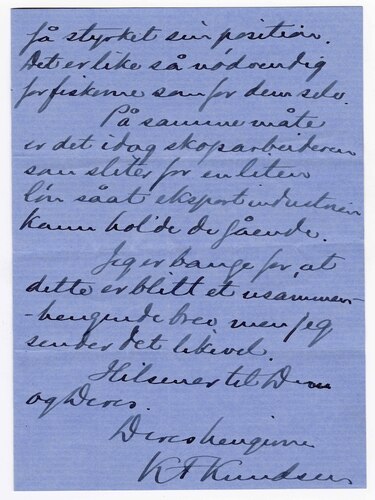 få styrket sin position.
Det er like så nødvendig
for fiskerne som for dem selv.
På samme måte
er det idag skoparbeideren
som sliter for en liten
løn såat eksportindustrien
kann holde de gående.
Jeg er bange for, at
dette er blitt et usammen-
-hengende brev, men jeg
sender det likevel.
Hilsener til Dem
og Deres.
Deres hengivne
K F Knudsen